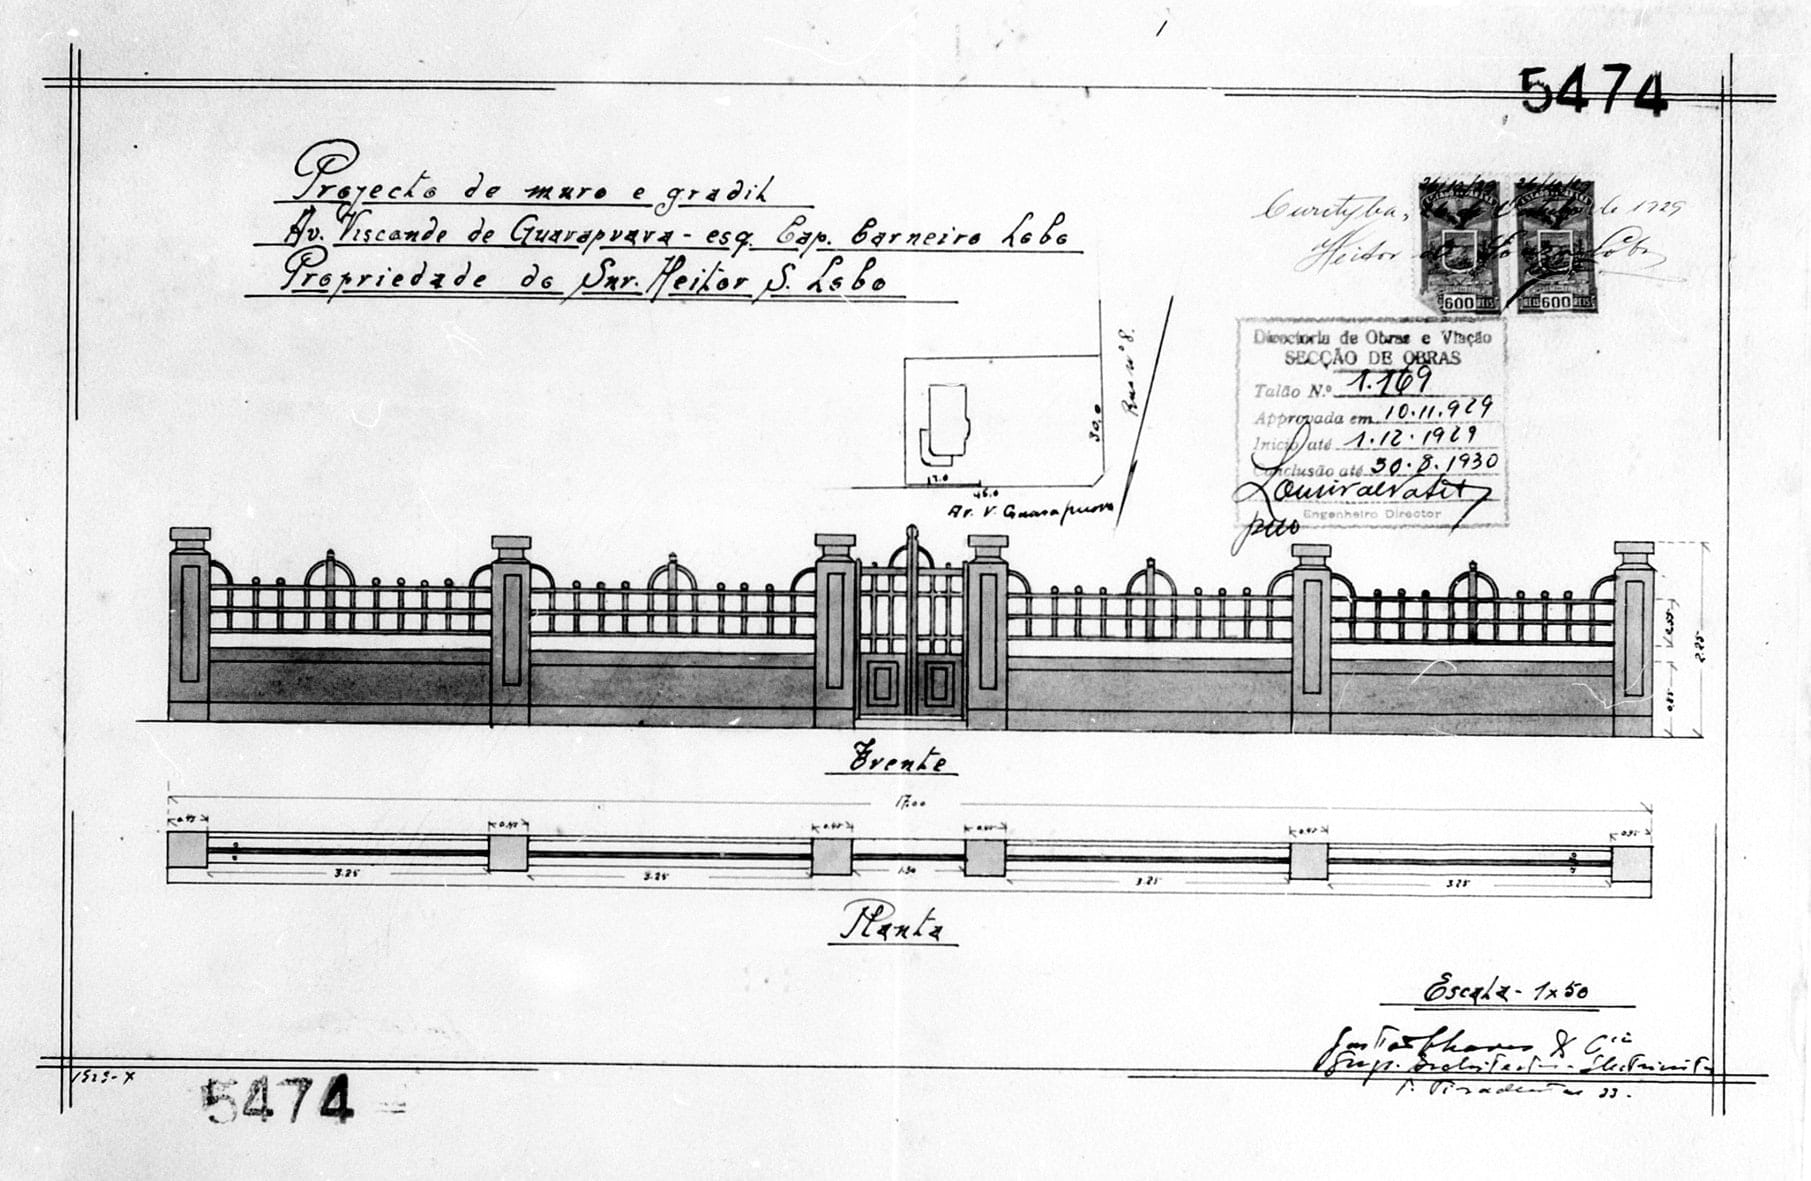 5474
Projecto de muro e gradil
Av. Visconde de Guarapuava - esq. Cap. Carneiro Lobo
Propriedade do Snr. Heitor S. Lobo
Curityba, de 1929
Heitor Lobo
600 REIS
600 REIS
Directoria de Obras e Viação
SECÇÃO DE OBRAS
Talão N.º 1.169
Approvada em 10.11.929
Inicio até 1.12.1929
Conclusão até 30.8.1930
Engenheiro Director
Rua nº 8.
30,0
17.0
46.0
Av. V. Guarapuava
0,55
2.25
0,85
Frente
17.00
0.45
0.45
0.45
0.45
0.45
0.45
3.25
3.25
1.30
3.25
3.25
Planta
Escala - 1x50
Chaves & Cia
33.
1929-X
5474